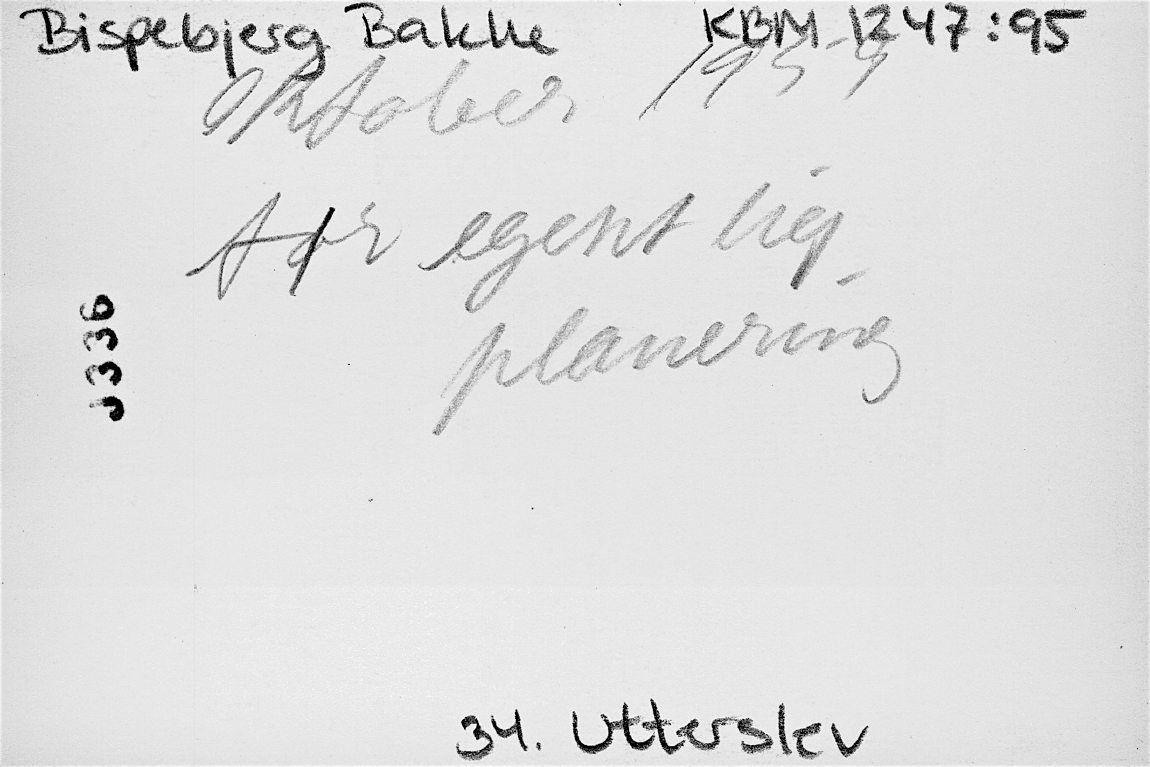 Bispebjerg Bakke KBM 1247:95
Oktober 1954
før egentlig
planering
J336
34. Utterslev